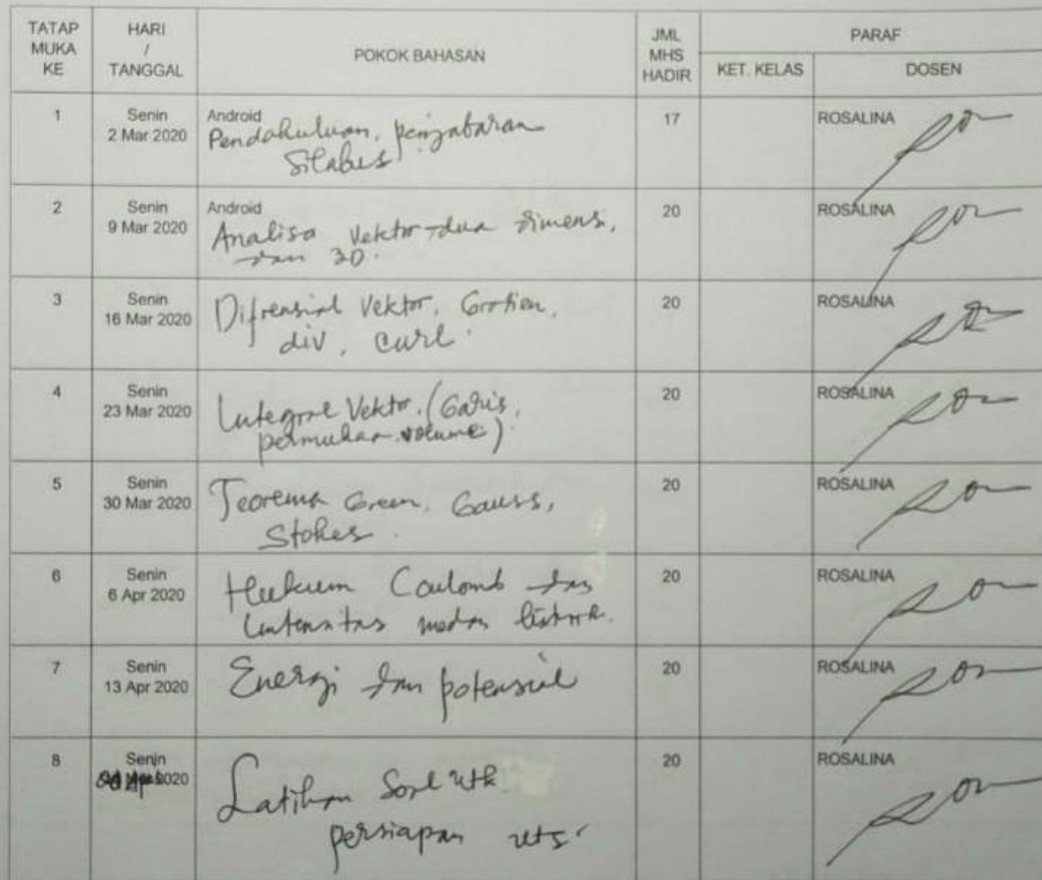 TATAP MUKA KE
HARI / TANGGAL
POKOK BAHASAN
JML MHS HADIR
PARAF
KET. KELAS
DOSEN
1
Senin
2 Mar 2020
Android
Pendahuluan, penjabaran
Silabus
17
ROSALINA
2
Senin
9 Mar 2020
Android
Analisa Vektor dua dimensi,
dan 3D.
20
ROSALINA
3
Senin
16 Mar 2020
Difrensial Vektor, Gradien,
div, curl.
20
ROSALINA
4
Senin
23 Mar 2020
Integral Vektor. (Garis,
permukaan volume)
20
ROSALINA
5
Senin
30 Mar 2020
Teorema Green, Gauss,
Stokes.
20
ROSALINA
6
Senin
6 Apr 2020
Hukum Coulomb dan
Intensitas medan listrik.
20
ROSALINA
7
Senin
13 Apr 2020
Energi dan potensial
20
ROSALINA
8
Senin
2020
Latihan Soal utk
persiapan uts
20
ROSALINA